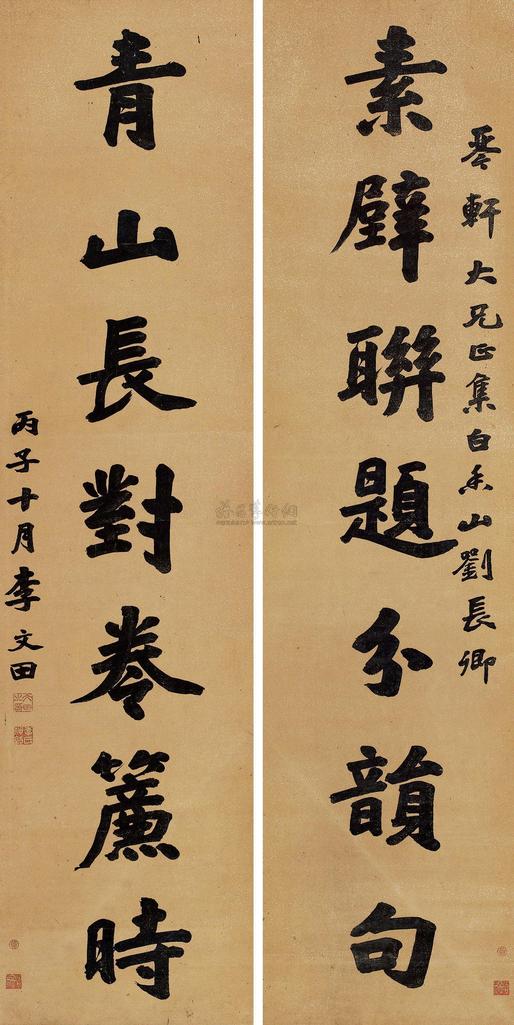 琴軒大兄正集白香山劉長卿
素壁聯題分韻句
青山長對卷簾時
丙子十月李文田